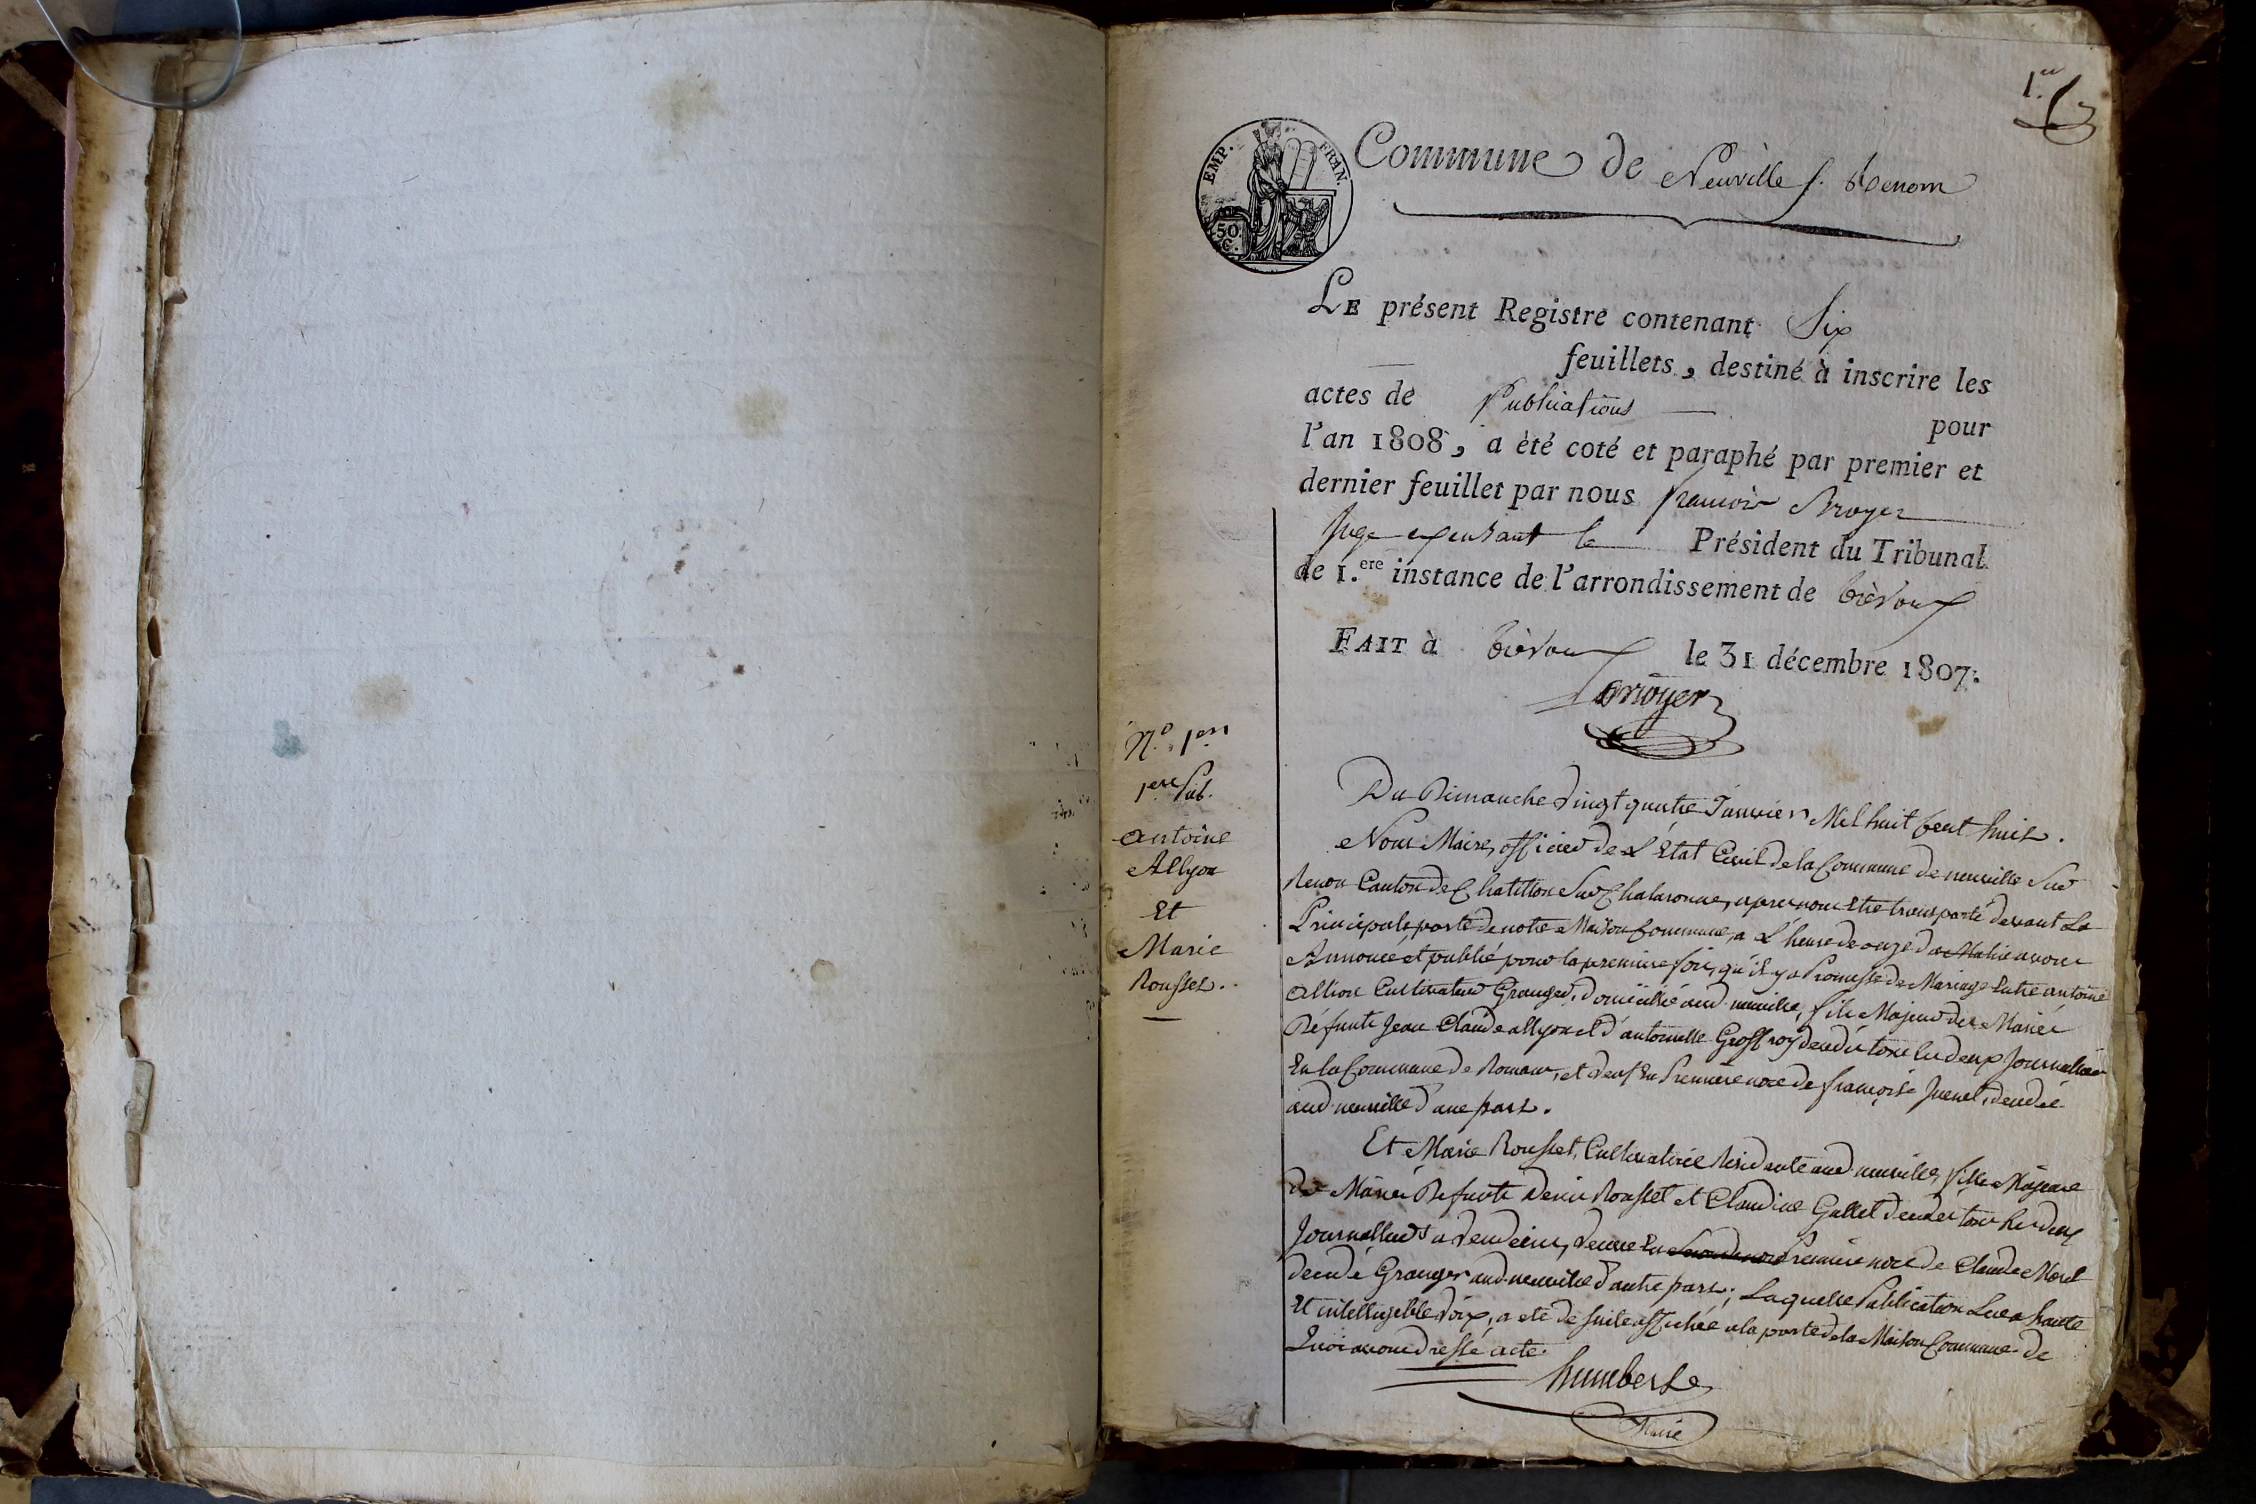 1.er
EMP. FRAN.
50. C.
Commune de Neuville s. Renom
LE présent Registre contenant Six
feuillets, destiné à inscrire les
actes de Publications pour
l'an 1808, a été coté et paraphé par premier et
dernier feuillet par nous francois Broyer
Juge exersant le Président du Tribunal
de 1.ere instance de l'arrondissement de trèvoux
FAIT à trèvoux le 31 décembre 1807.
Broyer
N.o 1er
1ere Pub.
Antoine
Allyon
Et
Marie
Rousset.
Du Dimanche vingt quatre Janvier Mil huit Cent huit.
Nous Maire, officier de L'Etat Civil de la Commune de neuville Sur
Renon Canton de Chatillon Sur Chalaronne, apres nous etre transporté devant La
Principale porte de notre Maison Commune, a L'heure de onze du Matin avons
Annoncé et publié pour la premiere fois, qu'il y a Promesse de Mariage Entre antoine
Allion Cultivateur Granger, domicillié aud. neuville, fils Majeur des Mariés
Défunts Jean Claude allyon et d'antoinette Geoffroy décédés tous les deux Journalliers
En la Commune de Romans, et veuf En Premiere noce de françoise Juenet, décédée
aud. neuville d'une part.
Et Marie Rousset, Cultivatrice Residante aud. neuville, fille Majeure
des Mariés Defunts Denis Rousset et Claudine Gallet decedes tous les deux
Journalliers a vendeins, veuve En Premiere noce de Claude Morel
decedé Granger aud. neuville d'autre part; Laquelle Publication Lue a haute
Et intelligible voix, a ete de suite affichée a la porte de la Maison Commune de
Quoi avons dressé acte.
humbert
Maire